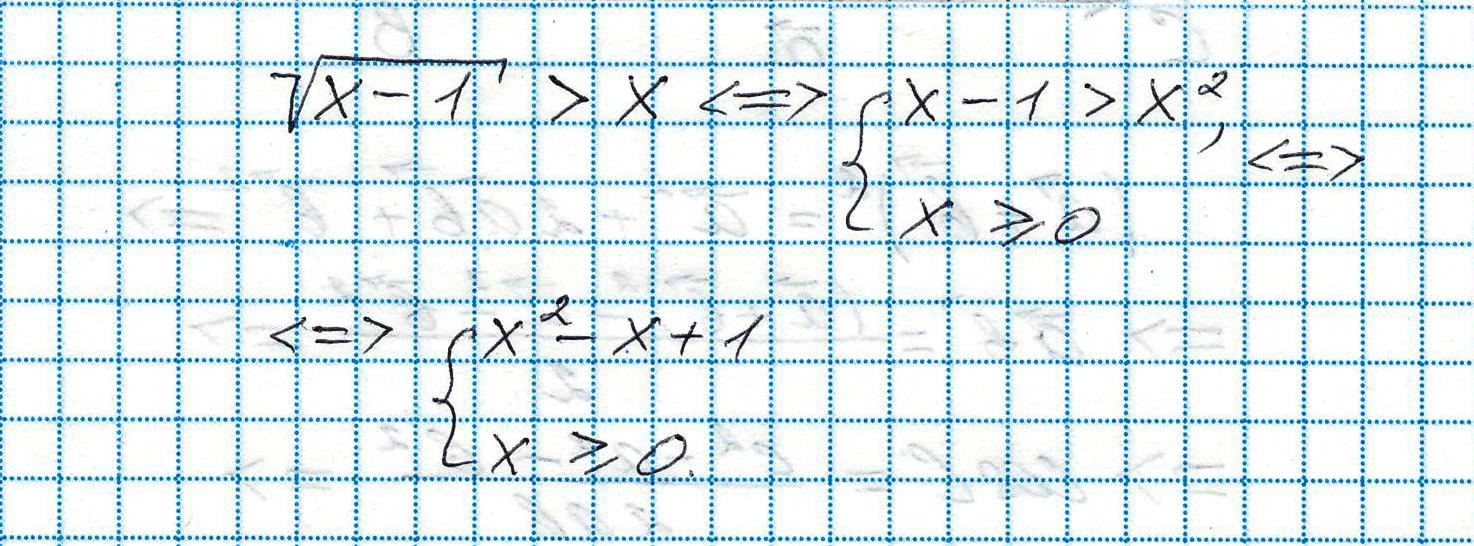 √(x-1) > x <=> { x-1 > x², x ⩾ 0 <=>
<=> { x² - x + 1 x ⩾ 0.